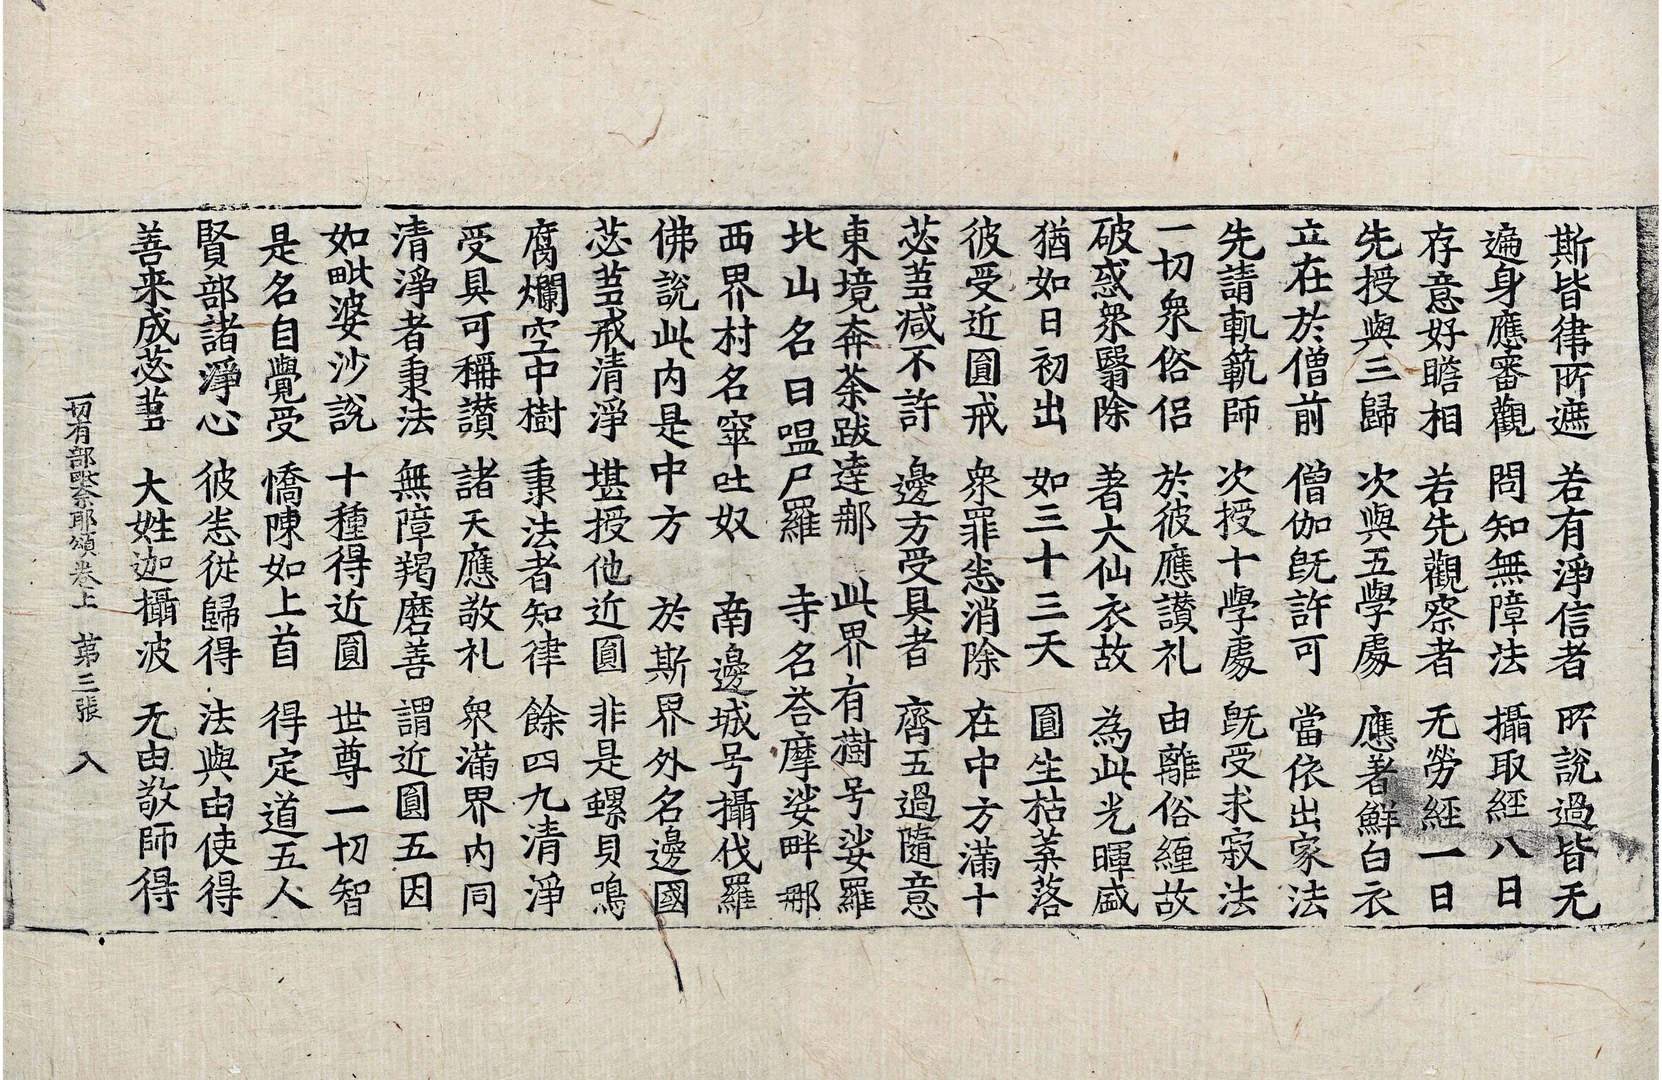 斯皆律所遮 若有淨信者 所說過皆无
遍身應審觀 問知無障法 攝取經八日
存意好瞻相 若先觀察者 无勞經一日
先授與三歸 次與五學處 應著鮮白衣
立在於僧前 僧伽旣許可 當依出家法
先請軌範師 次授十學處 旣受求寂法
一切衆俗侣 於彼應讃礼 由離俗纏故
破惑衆翳除 著大仙衣故 為此光暉盛
猶如日初出 如三十三天 圓生枯葉落
彼受近圓戒 衆罪悉消除 在中方滿十
苾芻减不許 邊方受具者 齊五過隨意
東境奔荼跋達𨚗 此界有樹号娑羅
北山名曰嗢尸羅 寺名荅摩娑畔𨚗
西界村名窣吐奴 南邊城号攝伐羅
佛說此內是中方 於斯界外名邊國
苾芻戒清淨 堪授他近圓 非是螺貝鳴
腐爛空中樹 秉法者知律 餘四九清淨
受具可稱讃 諸天應敬礼 衆滿界內同
清淨者秉法 無障羯磨善 謂近圓五因
如毗婆沙說 十種得近圓 世尊一切智
是名自覺受 憍陳如上首 得定道五人
賢部諸淨心 彼悉從歸得 法與由使得
善来成苾芻 大姓迦攝波 无由敬師得
一切有部毗奈耶頌卷上 第三張 入